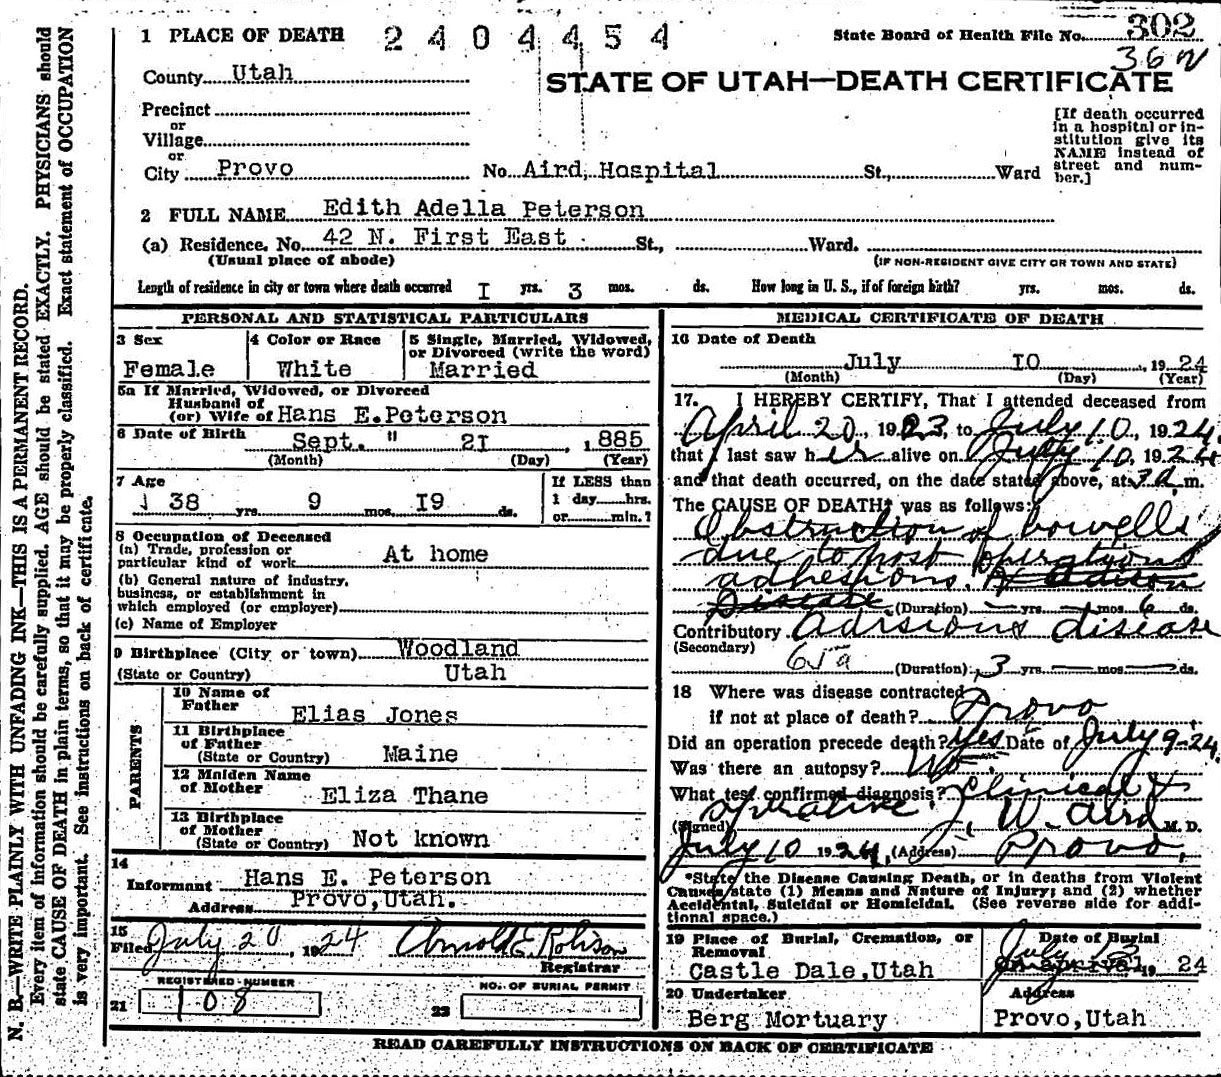 1 PLACE OF DEATH 2404454 State Board of Health File No. 302
County Utah 36
STATE OF UTAH—DEATH CERTIFICATE
Precinct
or
Village
or
City Provo No. Aird, Hospital St., Ward
[If death occurred
in a hospital or in-
stitution give its
NAME instead of
street and num-
ber.]
2 FULL NAME Edith Adella Peterson
(a) Residence. No. 42 N. First East St., Ward.
(Usual place of abode) (IF NON-RESIDENT GIVE CITY OR TOWN AND STATE)
Length of residence in city or town where death occurred I yrs. 3 mos. ds. How long in U. S., if of foreign birth? yrs. mos. ds.
PERSONAL AND STATISTICAL PARTICULARS
3 Sex 4 Color or Race 5 Single, Married, Widowed,
or Divorced (write the word)
Female White Married
5a If Married, Widowed, or Divorced
Husband of
(or) Wife of Hans E.Peterson
6 Date of Birth Sept. " 2I , 885
(Month) (Day) (Year)
7 Age If LESS than
38 yrs. 9 mos. I9 ds. 1 day hrs.
or min.?
8 Occupation of Deceased
(a) Trade, profession or
particular kind of work At home
(b) General nature of industry,
business, or establishment in
which employed (or employer)
(c) Name of Employer
9 Birthplace (City or town) Woodland
(State or Country) Utah
PARENTS
10 Name of
Father
Elias Jones
11 Birthplace
of Father
(State or Country) Maine
12 Maiden Name
of Mother Eliza Thane
13 Birthplace
of Mother
(State or Country) Not known
14
Informant Hans E. Peterson
Address Provo,Utah.
15
Filed July 20, 1924 Arnold E. Robison
Registrar
REGISTERED NUMBER NO. OF BURIAL PERMIT
21 108 22
MEDICAL CERTIFICATE OF DEATH
16 Date of Death
July I0 , 1924
(Month) (Day) (Year)
17. I HEREBY CERTIFY, That I attended deceased from
April 20, 1923, to July 10, 1924.
that I last saw her alive on July 10, 1924
and that death occurred, on the date stated above, at 3 a. m.
The CAUSE OF DEATH* was as follows:
Obstruction of bowells
due to post operations
adhesions. Addison
Disease (Duration) — yrs. — mos. 6 ds.
Contributory Addisions disease
(Secondary)
65a (Duration) 3 yrs. — mos. — ds.
18 Where was disease contracted
if not at place of death? Provo
Did an operation precede death? Yes Date of July 9-24.
Was there an autopsy? No.
What test confirmed diagnosis? Clinical &
operative.
(Signed) J. W. Aird M. D.
July 10 1924, (Address) Provo,
*State the Disease Causing Death, or in deaths from Violent
Causes, state (1) Means and Nature of Injury; and (2) whether
Accidental, Suicidal or Homicidal. (See reverse side for addi-
tional space.)
19 Place of Burial, Cremation, or
Removal
Castle Dale,Utah
Date of Burial
July
on arrival 19 24
20 Undertaker Address
Berg Mortuary Provo,Utah
READ CAREFULLY INSTRUCTIONS ON BACK OF CERTIFICATE
N. B.—WRITE PLAINLY WITH UNFADING INK—THIS IS A PERMANENT RECORD.
Every item of information should be carefully supplied. AGE should be stated EXACTLY. PHYSICIANS should
state CAUSE OF DEATH in plain terms, so that it may be properly classified. Exact statement of OCCUPATION
is very important. See instructions on back of certificate.